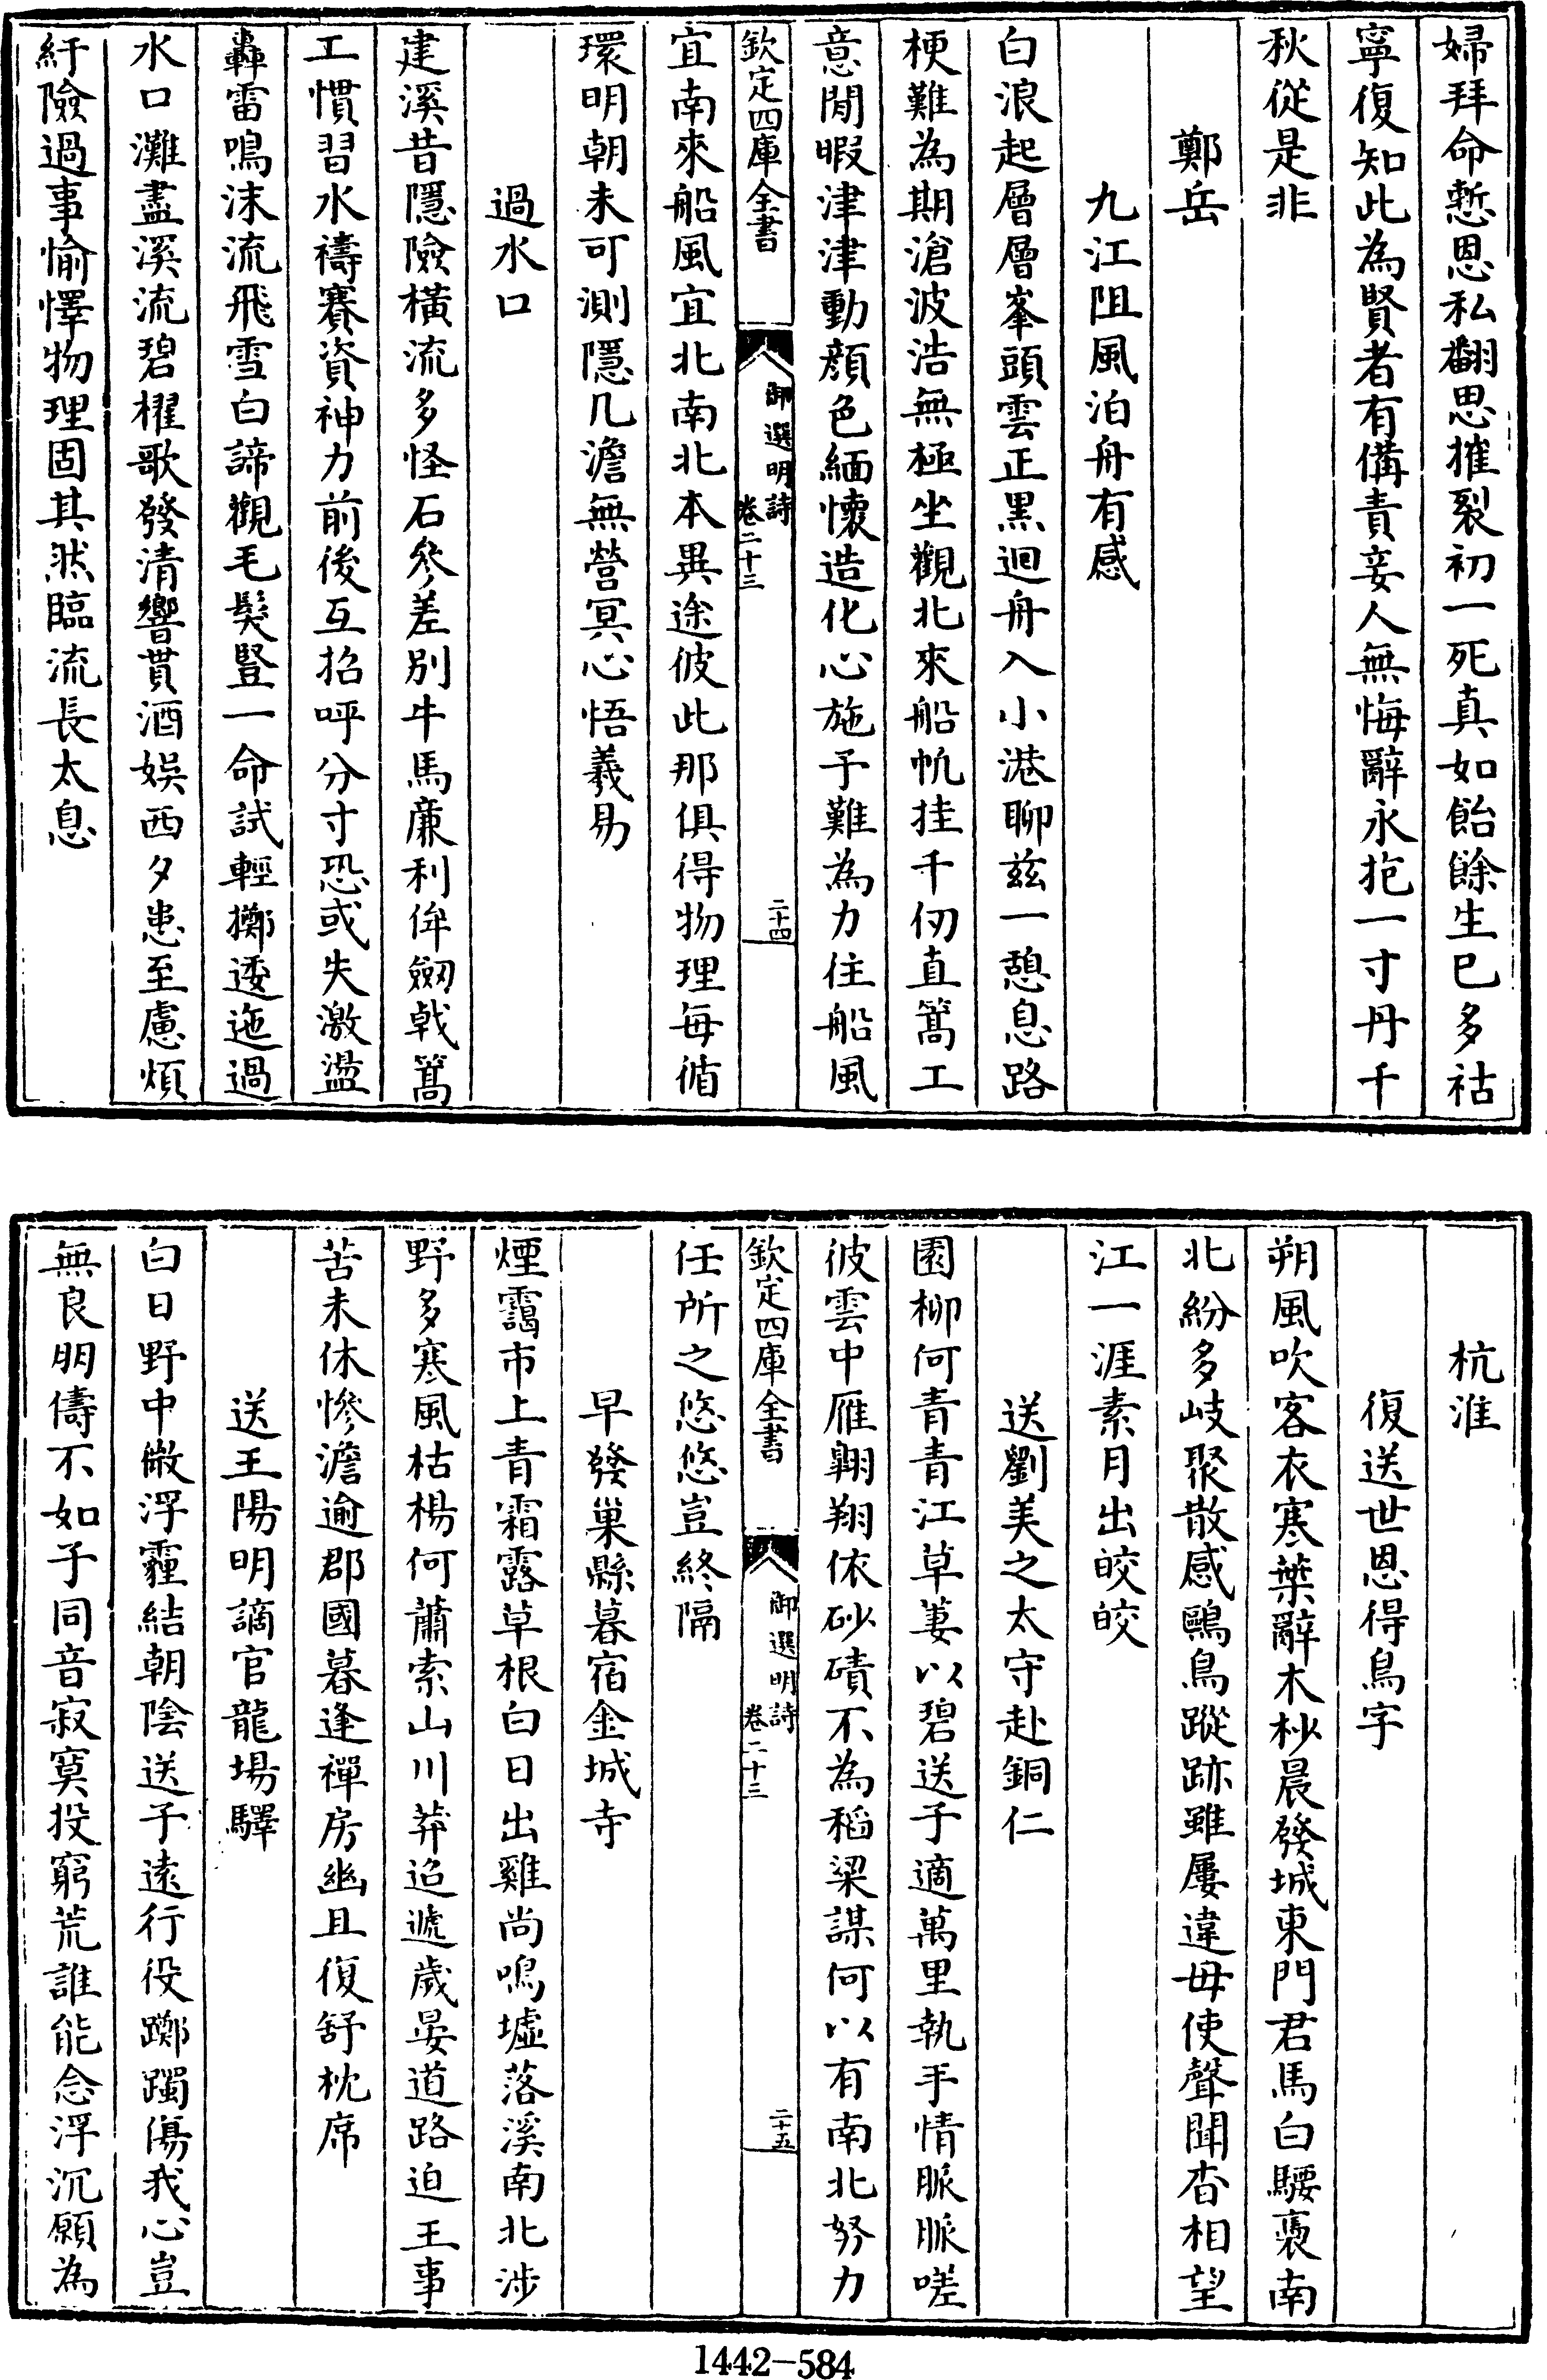 婦拜命慙恩私翻思摧裂初一死真如飴餘生已多祜
寧復知此為賢者有備責妾人無悔辭永抱一寸丹千
秋從是非
鄭岳
九江阻風泊舟有感
白浪起層層峯頭雲正黑迴舟入小港聊兹一憩息路
梗難為期滄波浩無極坐觀北來船帆挂千仞直篙工
意閒暇津津動顔色緬懷造化心施予難為力住船風
欽定四庫全書
御選明詩
卷二十三
二十四
宜南來船風宜北南北本異途彼此那俱得物理每循
環明朝未可測隱几澹無營冥心悟羲易
過水口
建溪昔隱險橫流多怪石參差別牛馬廉利侔劒戟篙
工慣習水禱賽資神力前後互招呼分寸恐或失激盪
轟雷鳴沫流飛雪白諦觀毛髮豎一命試輕擲逶迤過
水口灘盡溪流碧櫂歌發清響貰酒娱西夕患至慮煩
紆險過事愉懌物理固其然臨流長太息
杭淮
復送世恩得鳥字
朔風吹客衣寒葉辭木杪晨發城東門君馬白騕褭南
北紛多岐聚散感鷗鳥蹤跡雖屢違毋使聲聞杳相望
江一涯素月出皎皎
送劉美之太守赴銅仁
園柳何青青江草萋以碧送子適萬里執手情脈脈嗟
彼雲中雁翺翔依砂磧不為稻粱謀何以有南北努力
欽定四庫全書
御選明詩
卷二十三
二十五
任所之悠悠豈終隔
早發巢縣暮宿金城寺
煙靄市上青霜露草根白日出雞尚鳴墟落溪南北涉
野多寒風枯楊何蕭索山川莽迢遞歲晏道路迫王事
苦未休慘澹逾郡國暮逢禪房幽且復舒枕席
送王陽明謫官龍場驛
白日野中微浮霾結朝陰送子遠行役躑躅傷我心豈
無良朋儔不如子同音寂寞投窮荒誰能念浮沉願為
1442-584